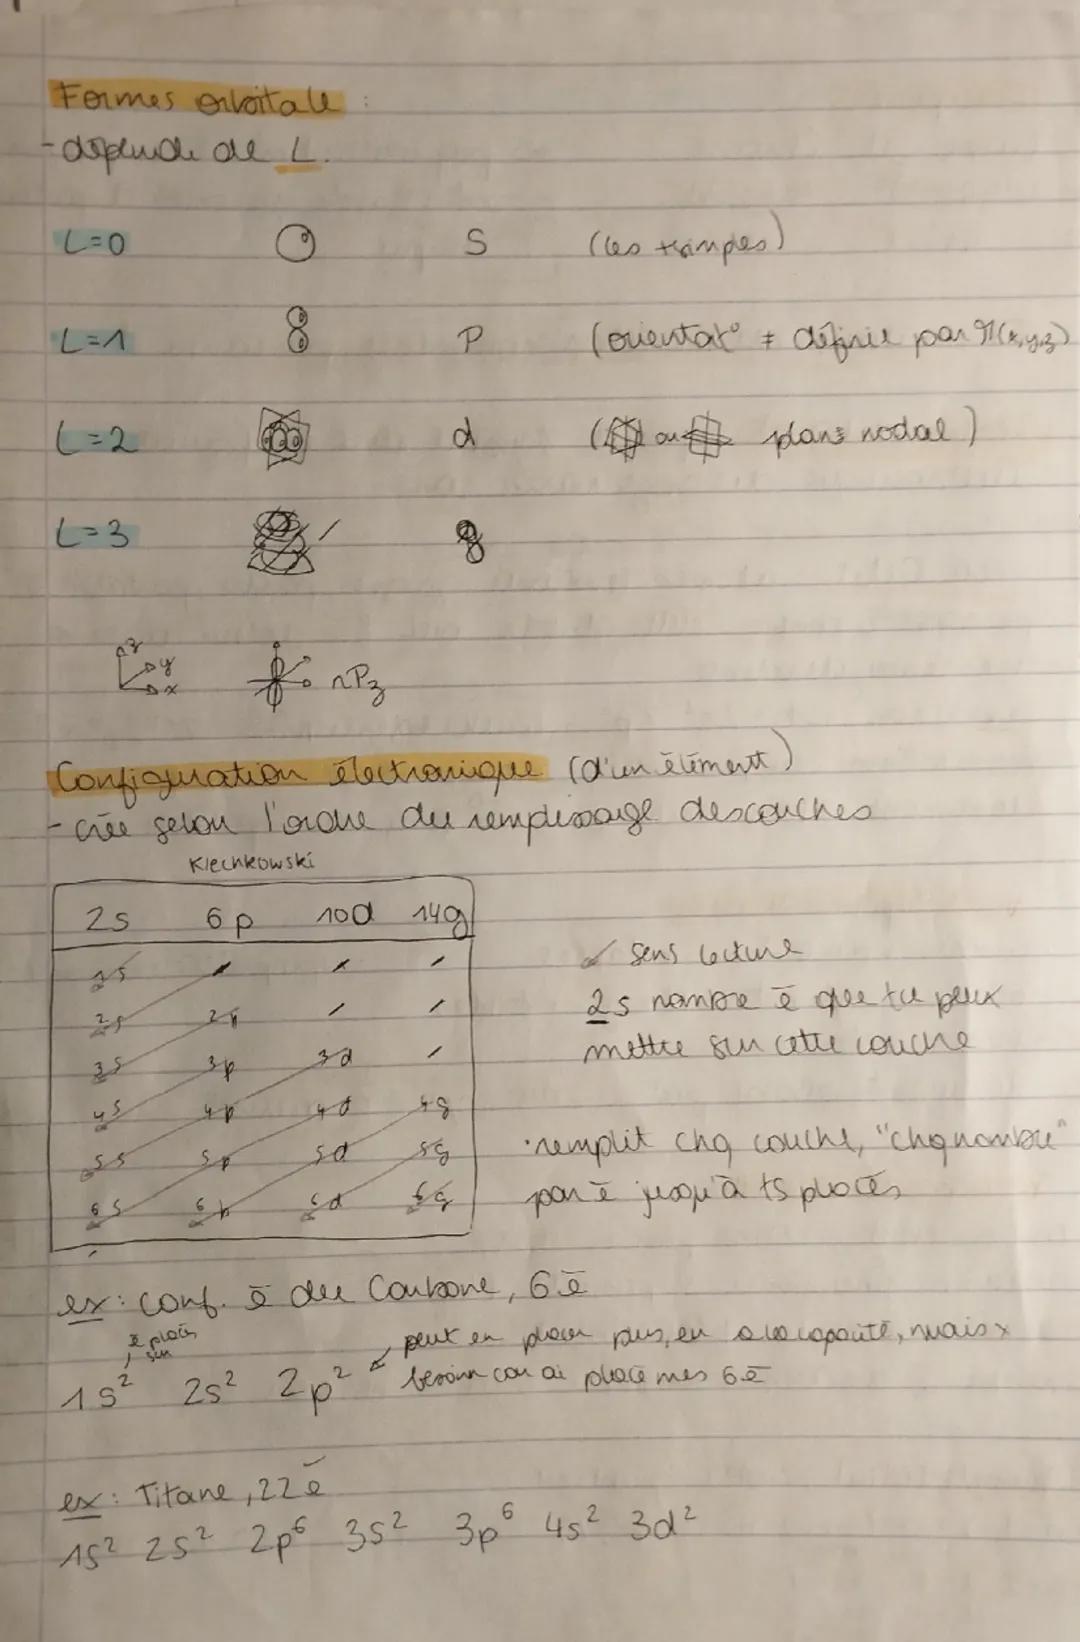 Formes orbitale :
- dépende de L.
L=0 S (les simples)
L=1 P (orientat° ≠ définie par M(x,y,z)
L=2 d ( ou plans nodal)
L=3 g
z y x nPz
Configuration électronique (d'un élément)
- crée selon l'ordre du remplissage des couches
Klechkowski
2s 6p 10d 14g
1s / / /
2s 2p / /
3s 3p 3d /
4s 4p 4d 4g
5s 5p 5d 5g
6s 6p 6d 6g
↙ sens lecture
2s nombre ē que tu peux
mettre sur cette couche
·remplit chq couche, "chq nombre"
par ē jusqu'à ts placés
ex: conf. ē du Carbone, 6ē
ē placés
sur
peut en placer plus, en a la capacité, mais x
besoin car ai placé mes 6ē
1s² 2s² 2p²
ex: Titane, 22ē
1s² 2s² 2p⁶ 3s² 3p⁶ 4s² 3d²